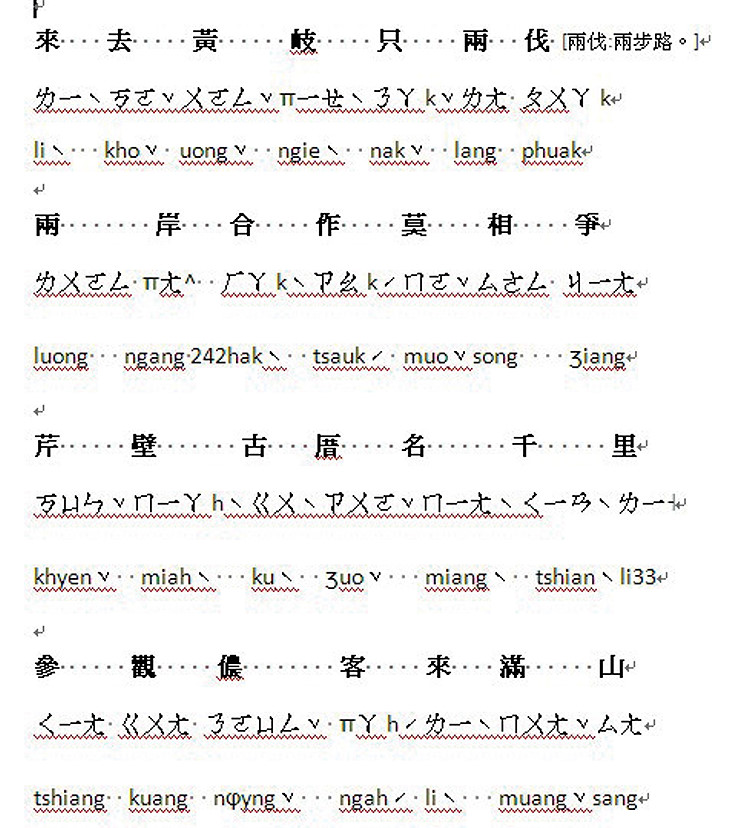 來 去 黃 岐 只 兩 伐 [兩伐:兩步路。]
ㄌㄧヽㄎㄛˇㄨㄛㄥˇπㄧㄝヽㄋㄚ kˇㄌㄤ ㄆㄨㄚ k
liヽ khoˇ uongˇ ngieヽ nakˇ lang phuak
兩 岸 合 作 莫 相 爭
ㄌㄨㄛㄥ πㄤ^ ㄏㄚ kヽㄗㄠ kˊㄇㄛˇㄙㄜㄥ ㄐㄧㄤ
luong ngang 242hakヽ tsaukˊ muoˇsong ʒiang
芹 壁 古 厝 名 千 里
ㄎㄩㄣˇㄇㄧㄚ hヽㄍㄨヽㄗㄨㄛˇㄇㄧㄤヽㄑㄧㄢヽㄌㄧ⊣
khyenˇ miahヽ kuヽ ʒuoˇ miangヽ tshianヽli33
參 觀 儂 客 來 滿 山
ㄑㄧㄤ ㄍㄨㄤ ㄋㄛㄩㄥˇ πㄚ hˊㄌㄧヽㄇㄨㄤˇㄙㄤ
tshiang kuang nφyngˇ ngahˊ liヽ muangˇsang